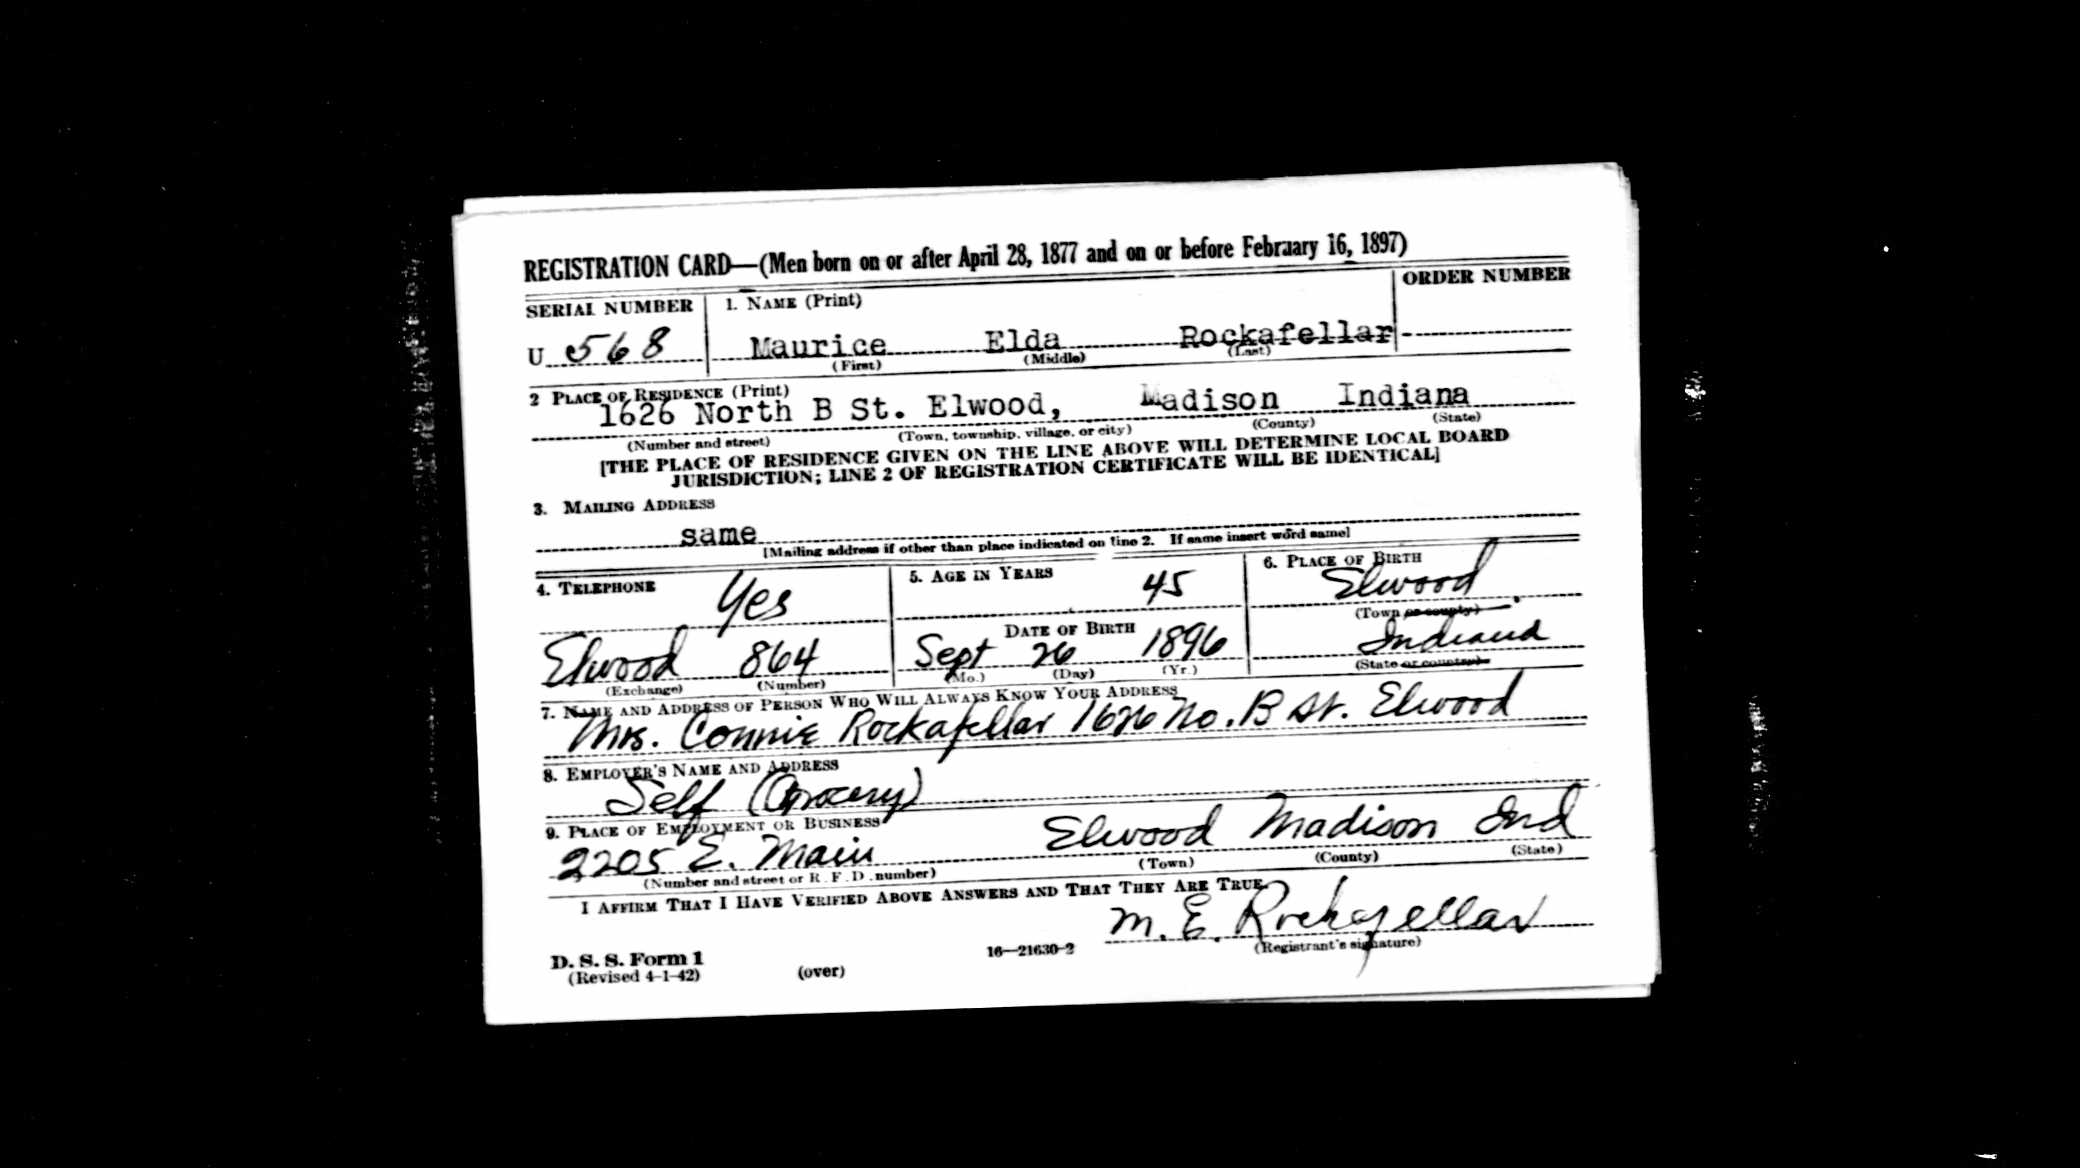 REGISTRATION CARD—(Men born on or after April 28, 1877 and on or before February 16, 1897)
SERIAL NUMBER 1. NAME (Print) ORDER NUMBER
U 568 Maurice Elda Rockafellar
(First) (Middle) (Last)
2 PLACE OF RESIDENCE (Print)
1626 North B St. Elwood, Madison Indiana
(Number and street) (Town, township, village, or city) (County) (State)
[THE PLACE OF RESIDENCE GIVEN ON THE LINE ABOVE WILL DETERMINE LOCAL BOARD
JURISDICTION; LINE 2 OF REGISTRATION CERTIFICATE WILL BE IDENTICAL]
3. MAILING ADDRESS
same
[Mailing address if other than place indicated on line 2. If same insert word same]
4. TELEPHONE 5. AGE IN YEARS 6. PLACE OF BIRTH
Yes 45 Elwood
(Town or county)
DATE OF BIRTH
Elwood 864 Sept 26 1896 Indiana
(Exchange) (Number) (Mo.) (Day) (Yr.) (State or country)
7. NAME AND ADDRESS OF PERSON WHO WILL ALWAYS KNOW YOUR ADDRESS
Mrs. Connie Rockafellar 1626 No. B St. Elwood
8. EMPLOYER'S NAME AND ADDRESS
Self (Grocery)
9. PLACE OF EMPLOYMENT OR BUSINESS
2205 E. Main Elwood Madison Ind
(Number and street or R. F. D. number) (Town) (County) (State)
I AFFIRM THAT I HAVE VERIFIED ABOVE ANSWERS AND THAT THEY ARE TRUE.
M. E. Rockafellar
(Registrant's signature)
D. S. S. Form 1
(Revised 4-1-42) (over) 16—21630-2